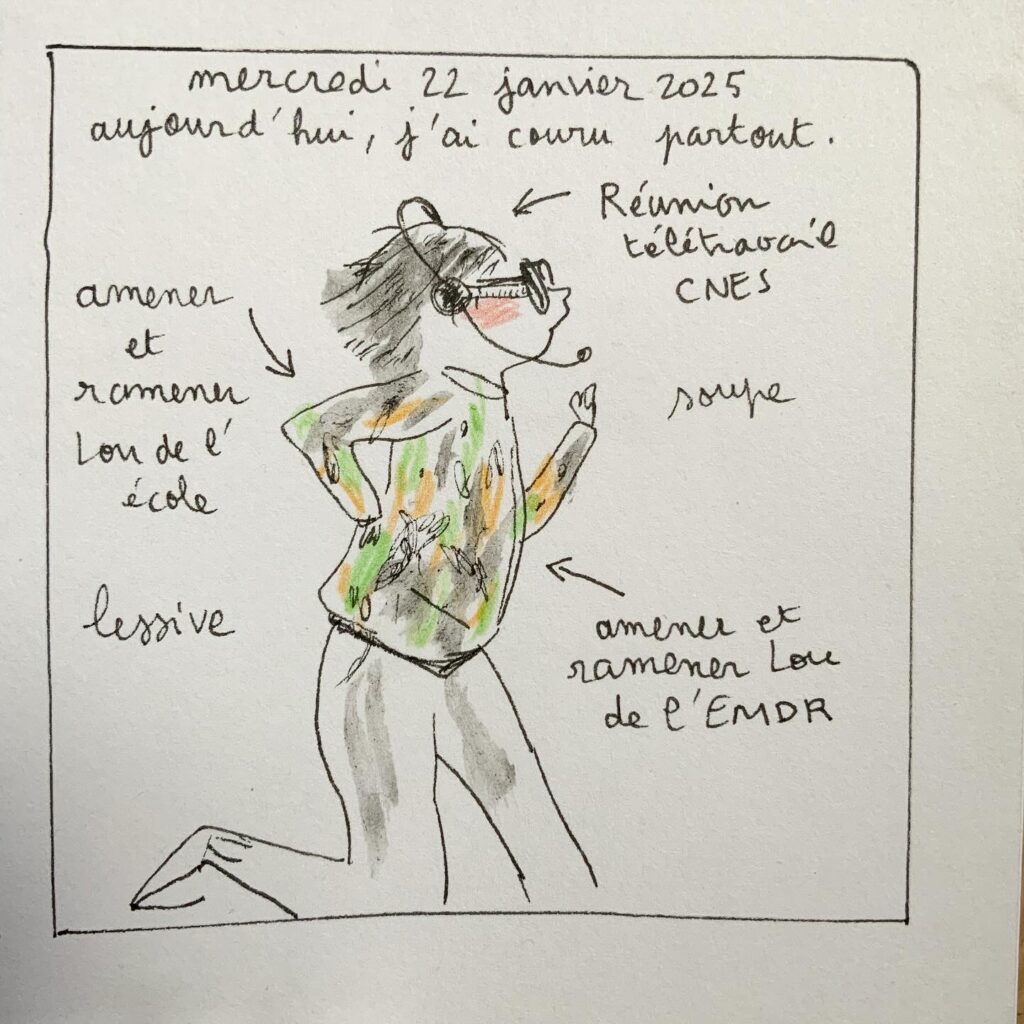 mercredi 22 janvier 2025
aujourd'hui, j'ai couru partout.
Réunion
télétravail
CNES
amener
et
ramener
Lou de l'
école
soupe
lessive
amener et
ramener Lou
de l'EMDR